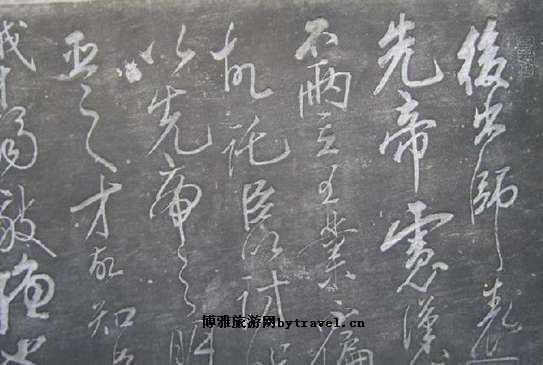 後出師表
先帝慮漢
不兩立王業不偏
故託臣以討賊
以先帝之明
臣之才故知臣
賊才弱敵強也
博雅旅游网bytravel.cn